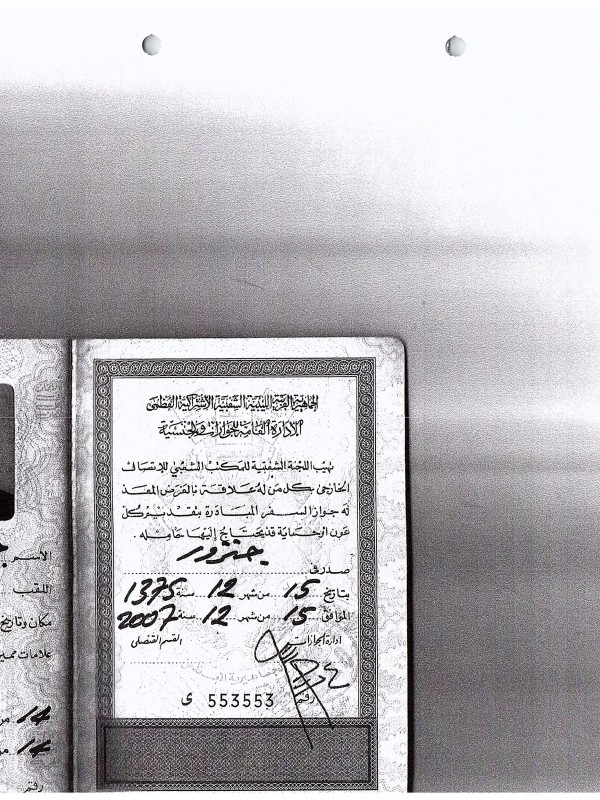 الجماهيرية العربية الليبية الشعبية الاشتراكية العظمى
الإدارة العامة للجوازات والجنسية
تهيب اللجنة الشعبية للمكتب الشعبي للاتصال
الخارجى بكل من له علاقة بالغرض المعد
له جواز السفر المبادرة بتقديم كل
عون أو حماية قد يحتاج إليها حامله .
صدر في جنزور
بتاريخ 15 من شهر 12 سنة 1375
الموافق 15 من شهر 12 سنة 2007
إدارة الجوازات القسم القنصلى
رقم 553553 ى
الاسم
اللقب
مكان وتاريخ
علامات مميز
14 من
14 من
رقم